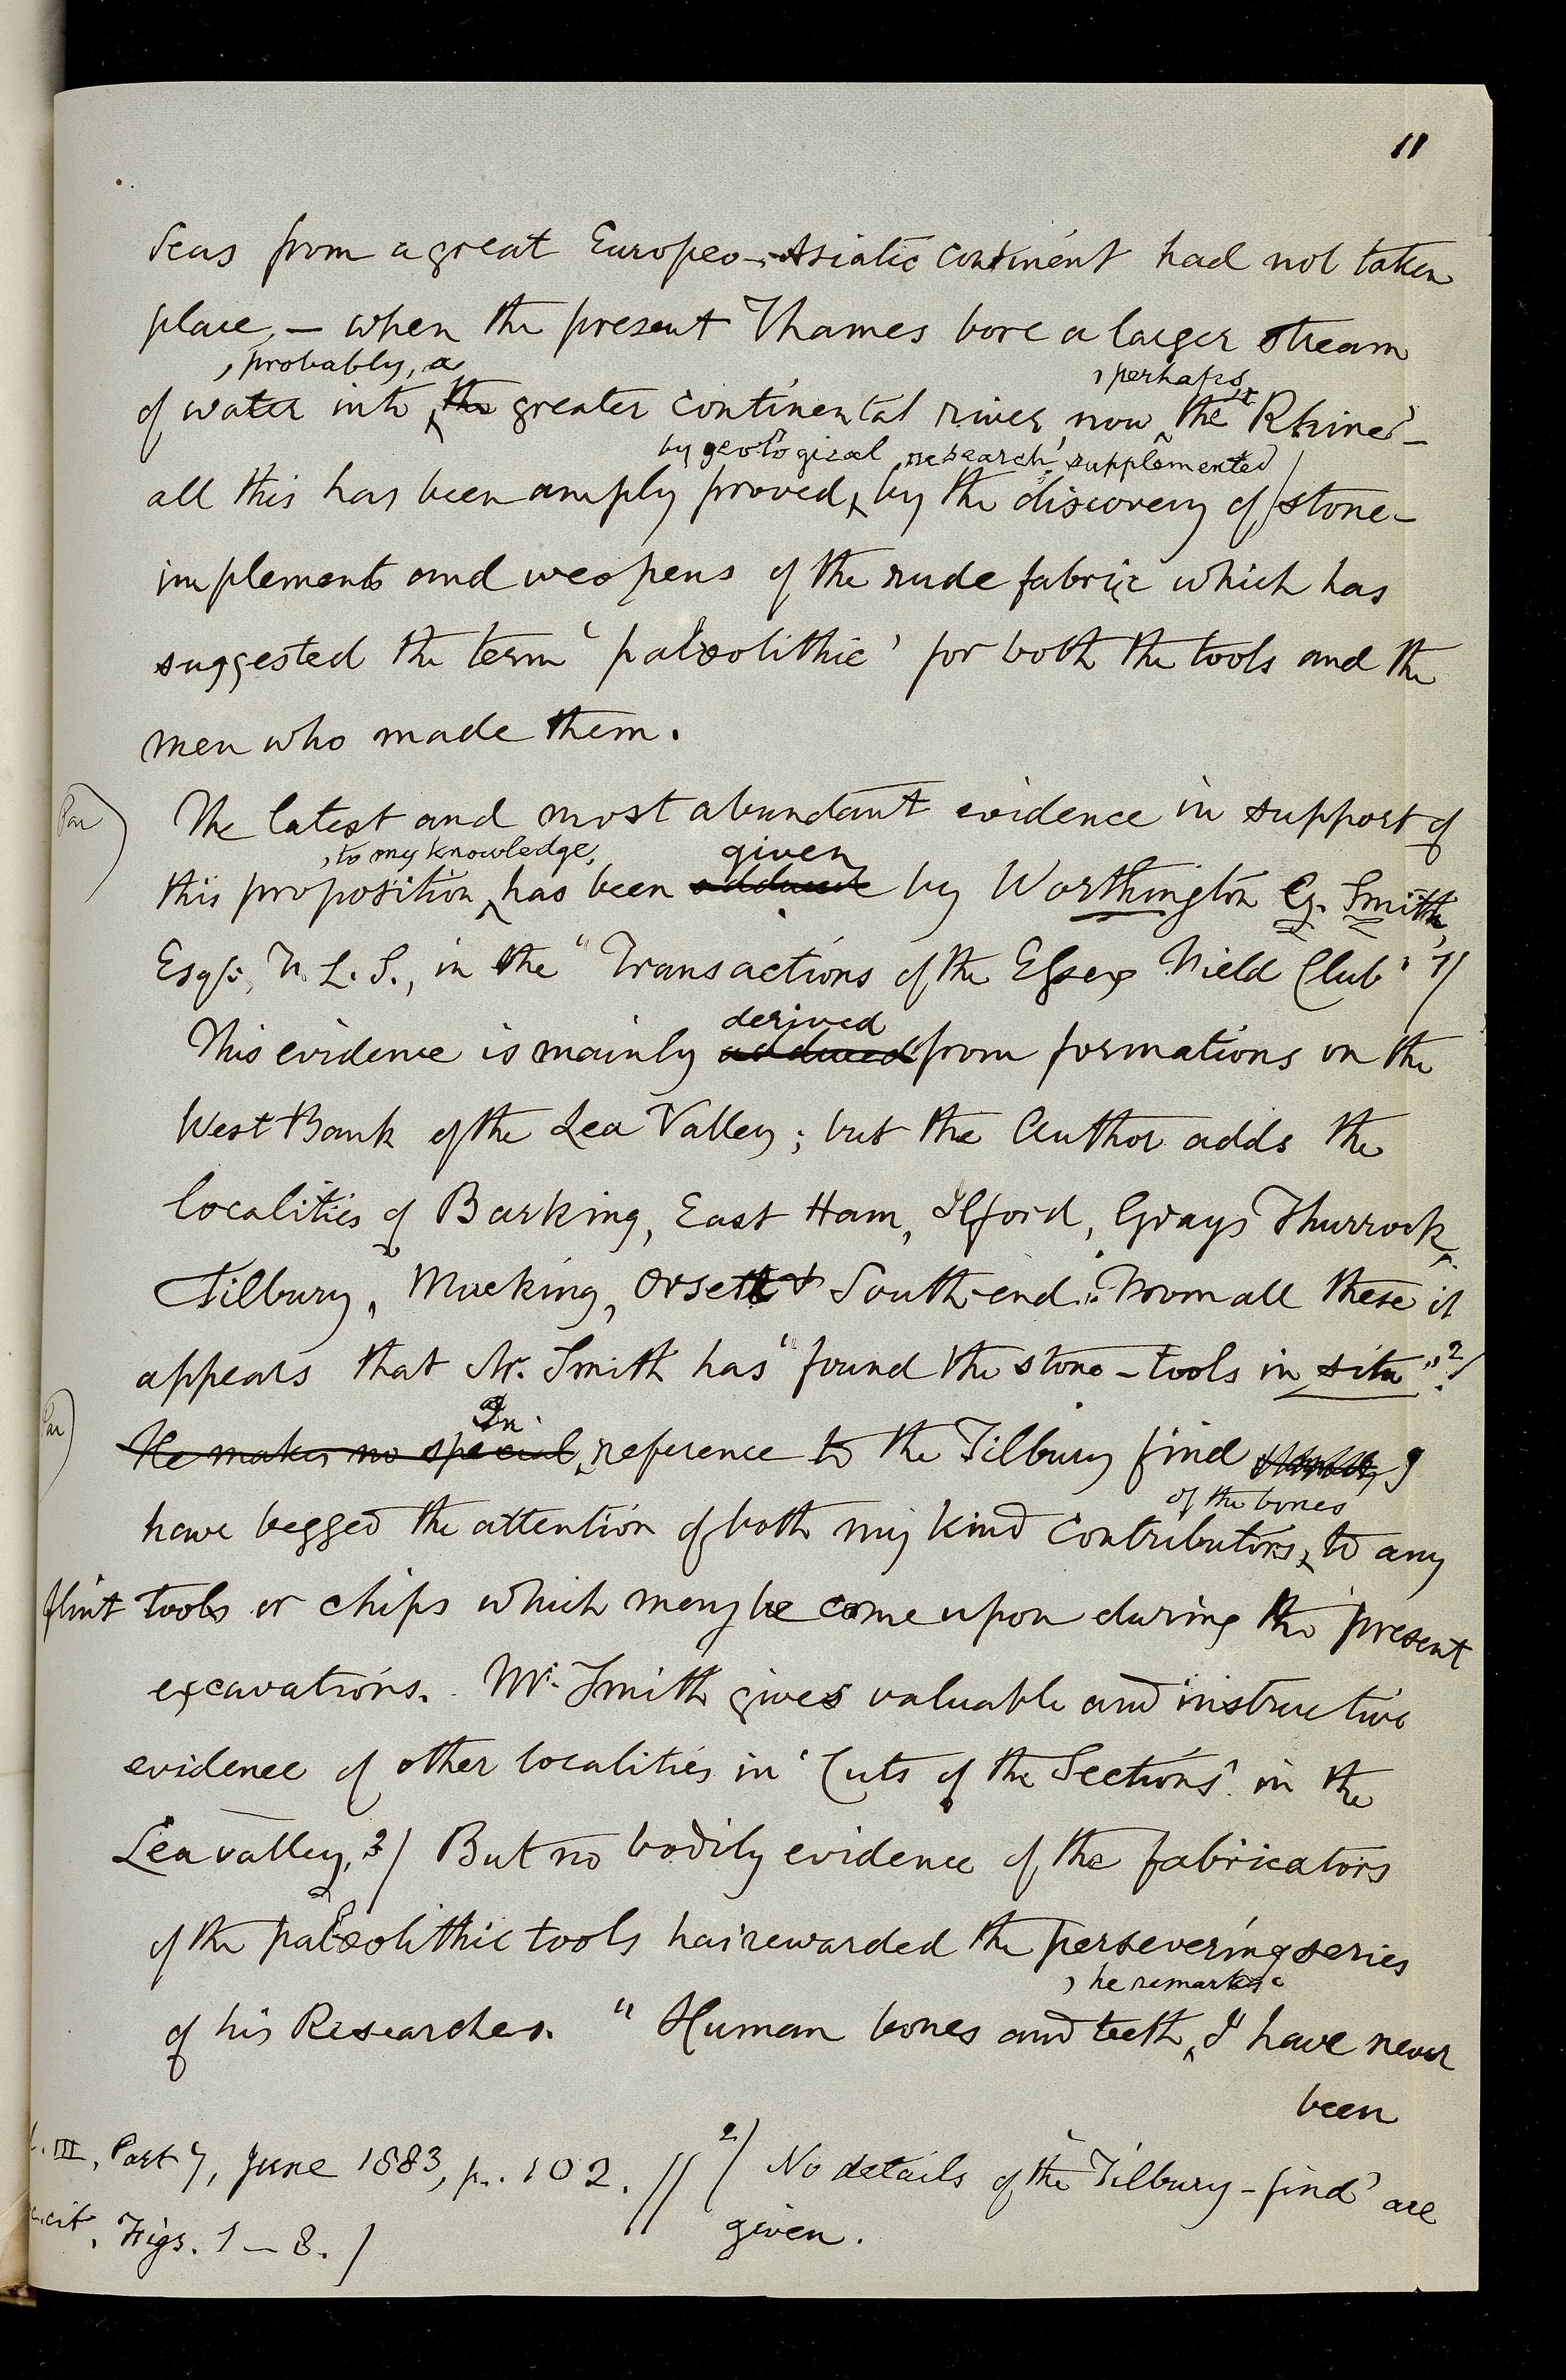 11
seas from a great Europeo-Asiatic continent had not taken
place, — when the present Thames bore a larger stream
, probably, a , perhaps,
of water into the greater continental river, now the 'Rhine'—
by geological research, supplemented
all this has been amply proved, by the discovery of stone-
implements and weapens of the rude fabric which has
suggested the term 'palæolithic' for both the tools and the
men who made them.
Par) The latest and most abundant evidence in support of
, to my knowledge, given
this proposition has been adduced by Worthington G. Smith,
Esqr., F. L. S., in the "Transactions of the Essex Field Club" 1/
derived
This evidence is mainly adduced from formations on the
West Bank of the Lea Valley; but the Author adds the
localities of Barking, East Ham, Ilford, Grays Thurrock,
Tilbury, Mucking, Orsett & South-end. From all these it
appears that Mr. Smith has "found the stone-tools in situ". 2/
In
Par) He makes no special reference to the Tilbury find I
of the bones
have begged the attention of both my kind contributors, to any
flint tools or chips which may be come upon during the present
excavations. Mr. Smith gives valuable and instructive
evidence of other localities in 'Cuts of the Sections' in the
Lea valley, 3/ But no bodily evidence of the fabricators
of the palæolithic tools has rewarded the persevering series
, he remarks,
of his Researches. "Human bones and teeth, I have never
been
III, Part 7, June 1883, p. 102. // 2/ No details of the 'Tilbury-find' are
given.
cit. Figs. 1—8. /